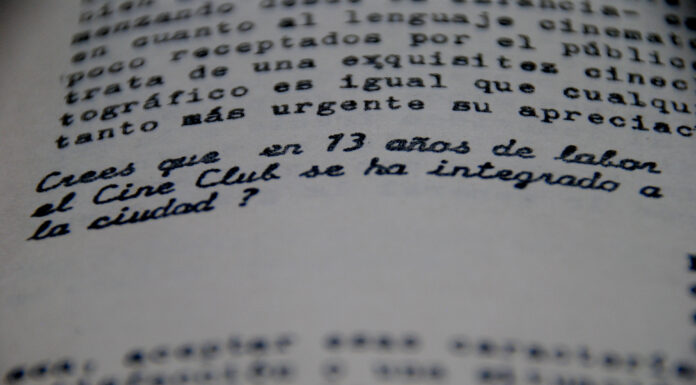 menzando desde
en cuanto al lenguaje cinemat
poco receptados por el públic
trata de una exquisitez cinec
tográfico es igual que cualqu
tanto más urgente su apreciac
Crees que en 13 años de labor
el Cine Club se ha integrado a
la ciudad ?
aceptar esas caracterí